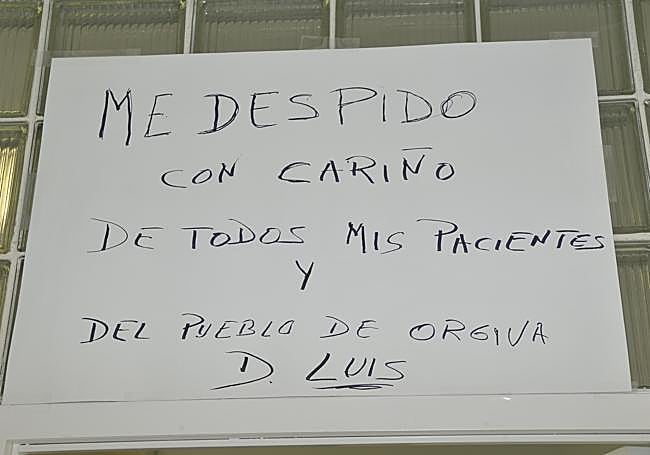 ME DESPIDO
CON CARIÑO
DE TODOS MIS PACIENTES
Y
DEL PUEBLO DE ORGIVA
D. LUIS